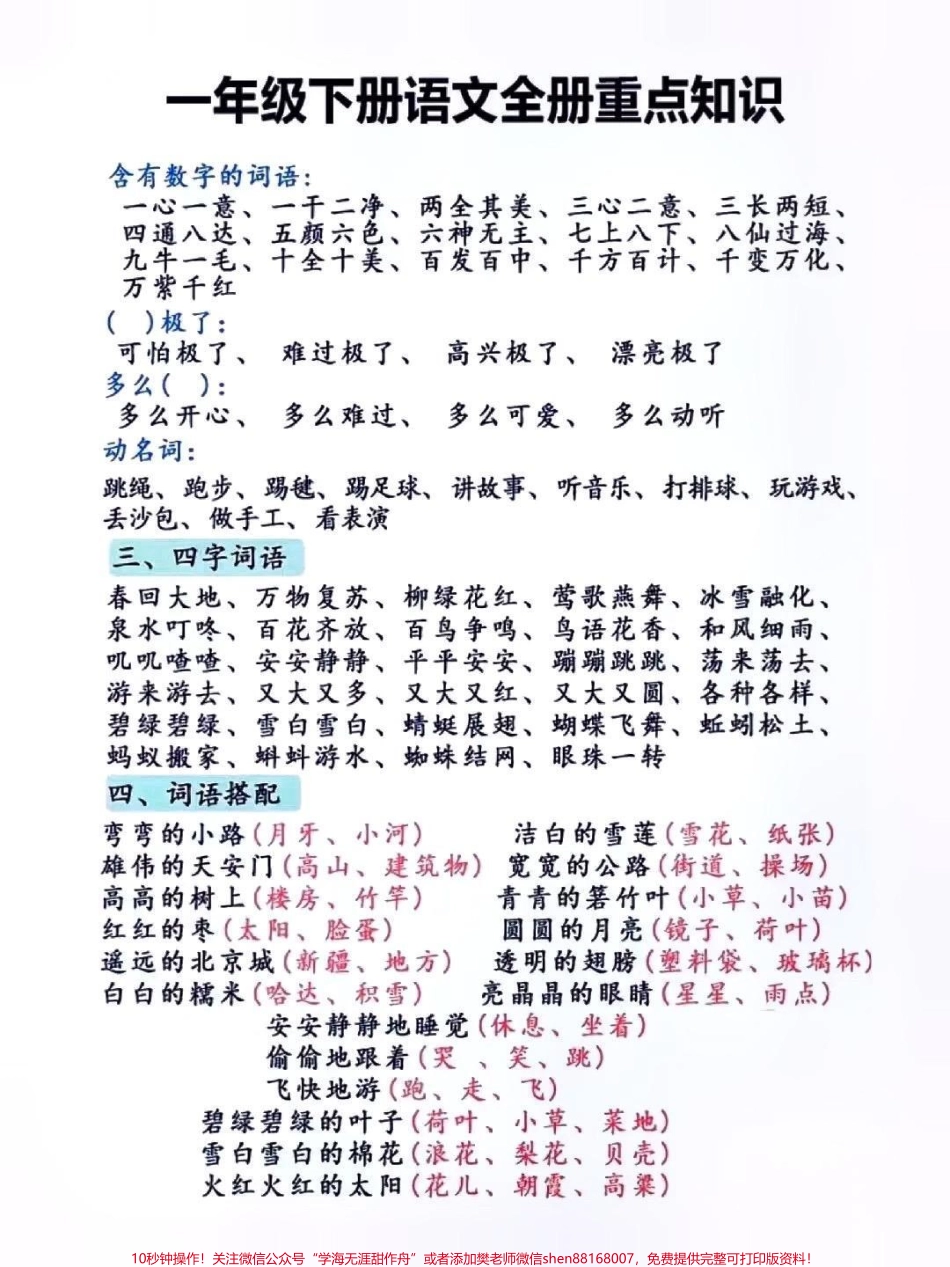 一年级下册语文全册重点知识
含有数字的词语：
一心一意、一干二净、两全其美、三心二意、三长两短、
四通八达、五颜六色、六神无主、七上八下、八仙过海、
九牛一毛、十全十美、百发百中、千方百计、千变万化、
万紫千红
(  )极了：
可怕极了、 难过极了、 高兴极了、 漂亮极了
多么(  )：
多么开心、 多么难过、 多么可爱、 多么动听
动名词：
跳绳、跑步、踢毽、踢足球、讲故事、听音乐、打排球、玩游戏、
丢沙包、做手工、看表演
三、四字词语
春回大地、万物复苏、柳绿花红、莺歌燕舞、冰雪融化、
泉水叮咚、百花齐放、百鸟争鸣、鸟语花香、和风细雨、
叽叽喳喳、安安静静、平平安安、蹦蹦跳跳、荡来荡去、
游来游去、又大又多、又大又红、又大又圆、各种各样、
碧绿碧绿、雪白雪白、蜻蜓展翅、蝴蝶飞舞、蚯蚓松土、
蚂蚁搬家、蝌蚪游水、蜘蛛结网、眼珠一转
四、词语搭配
弯弯的小路(月牙、小河) 洁白的雪莲(雪花、纸张)
雄伟的天安门(高山、建筑物) 宽宽的公路(街道、操场)
高高的树上(楼房、竹竿) 青青的箬竹叶(小草、小苗)
红红的枣(太阳、脸蛋) 圆圆的月亮(镜子、荷叶)
遥远的北京城(新疆、地方) 透明的翅膀(塑料袋、玻璃杯)
白白的糯米(哈达、积雪) 亮晶晶的眼睛(星星、雨点)
安安静静地睡觉(休息、坐着)
偷偷地跟着(哭 、笑、跳)
飞快地游(跑、走、飞)
碧绿碧绿的叶子(荷叶、小草、菜地)
雪白雪白的棉花(浪花、梨花、贝壳)
火红火红的太阳(花儿、朝霞、高粱)
10秒钟操作！关注微信公众号“学海无涯甜作舟”或者添加樊老师微信shen88168007，免费提供完整可打印版资料！